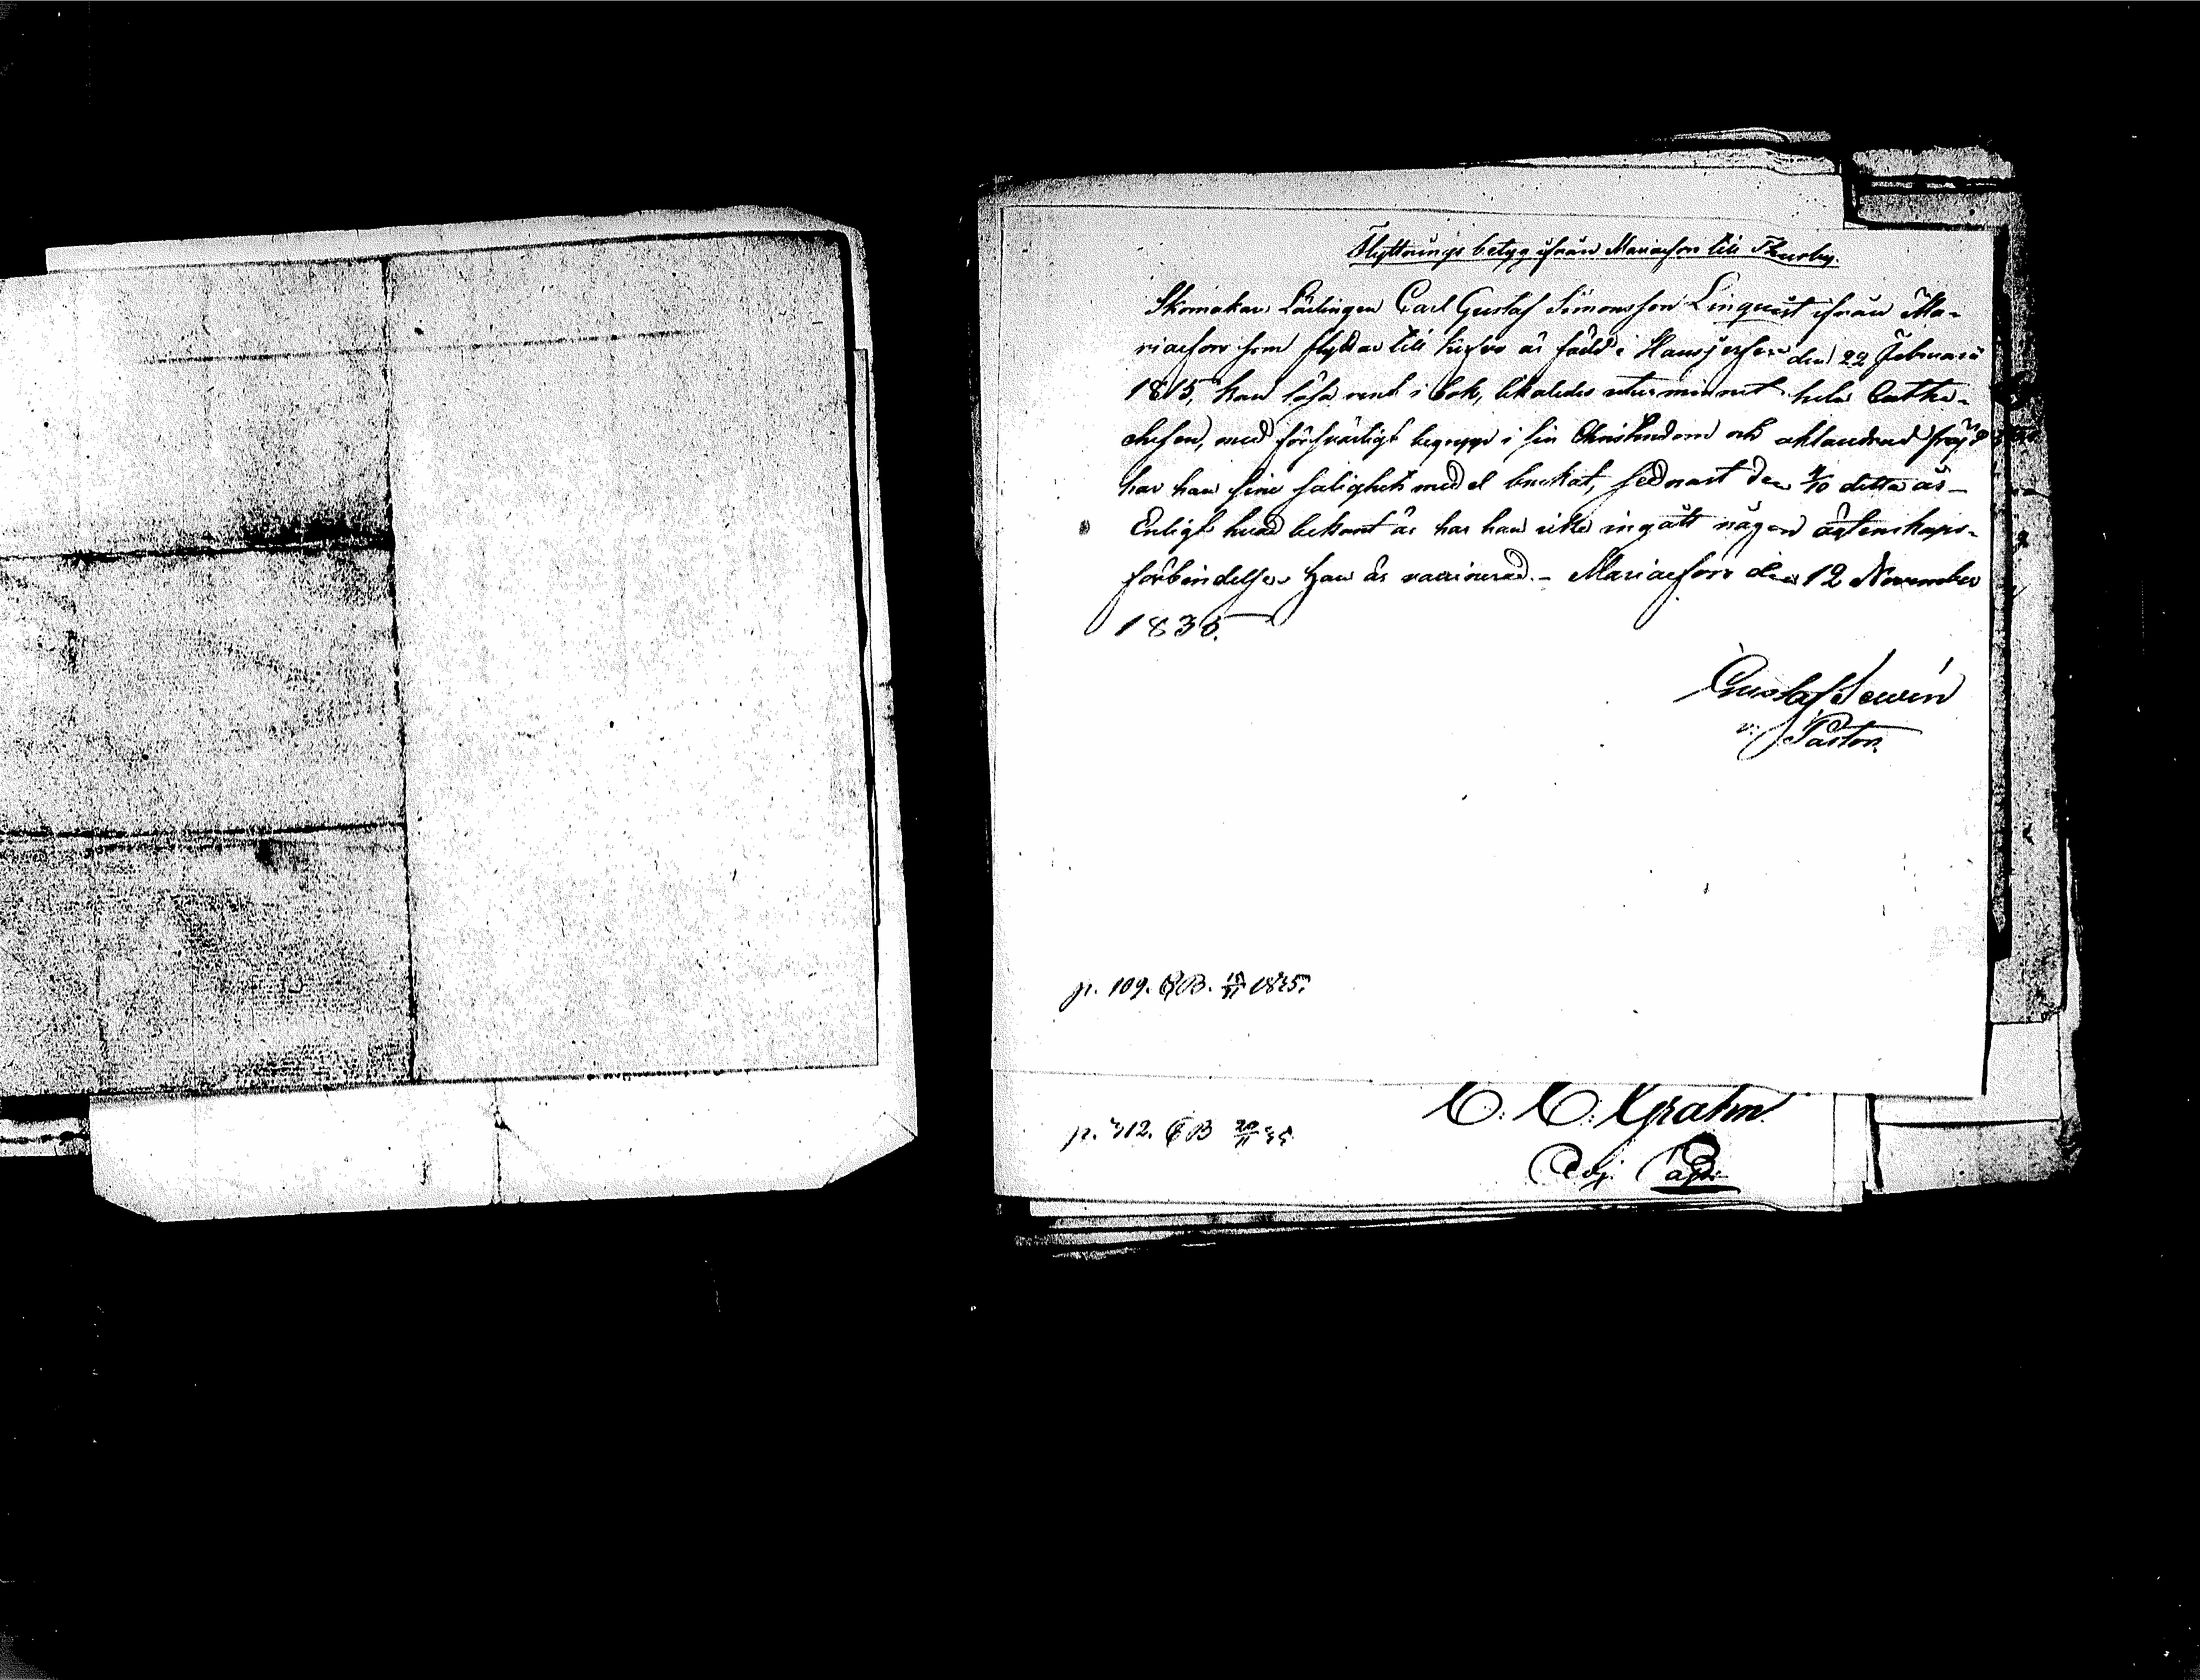 Flyttnings betyg ifrån Mariaefors till Thusby.
Skomakar Lärlingen Carl Gustaf Simonsson Linquist ifrån Ma-
riaefors som flyttar till är född i Hausjerfvi den 22 Februarii
1815, kan läsa rent i bok, likaledes utur minnet hela Cathe-
chesen, med försvarligt begrepp i sin Christendom och oklandrad frejd
har han sine salighets medel brukat, sednast den 4/10 detta år -
Enligt hvad bekant är har han icke ingått någon äktenskaps-
förbindelse. Han är vaccinerad. - Mariaefors den 12 November
1835.
Gustaf
v. Pastor.
p. 109. 1835.
p. 312.
C. C. Grahn
Adj.